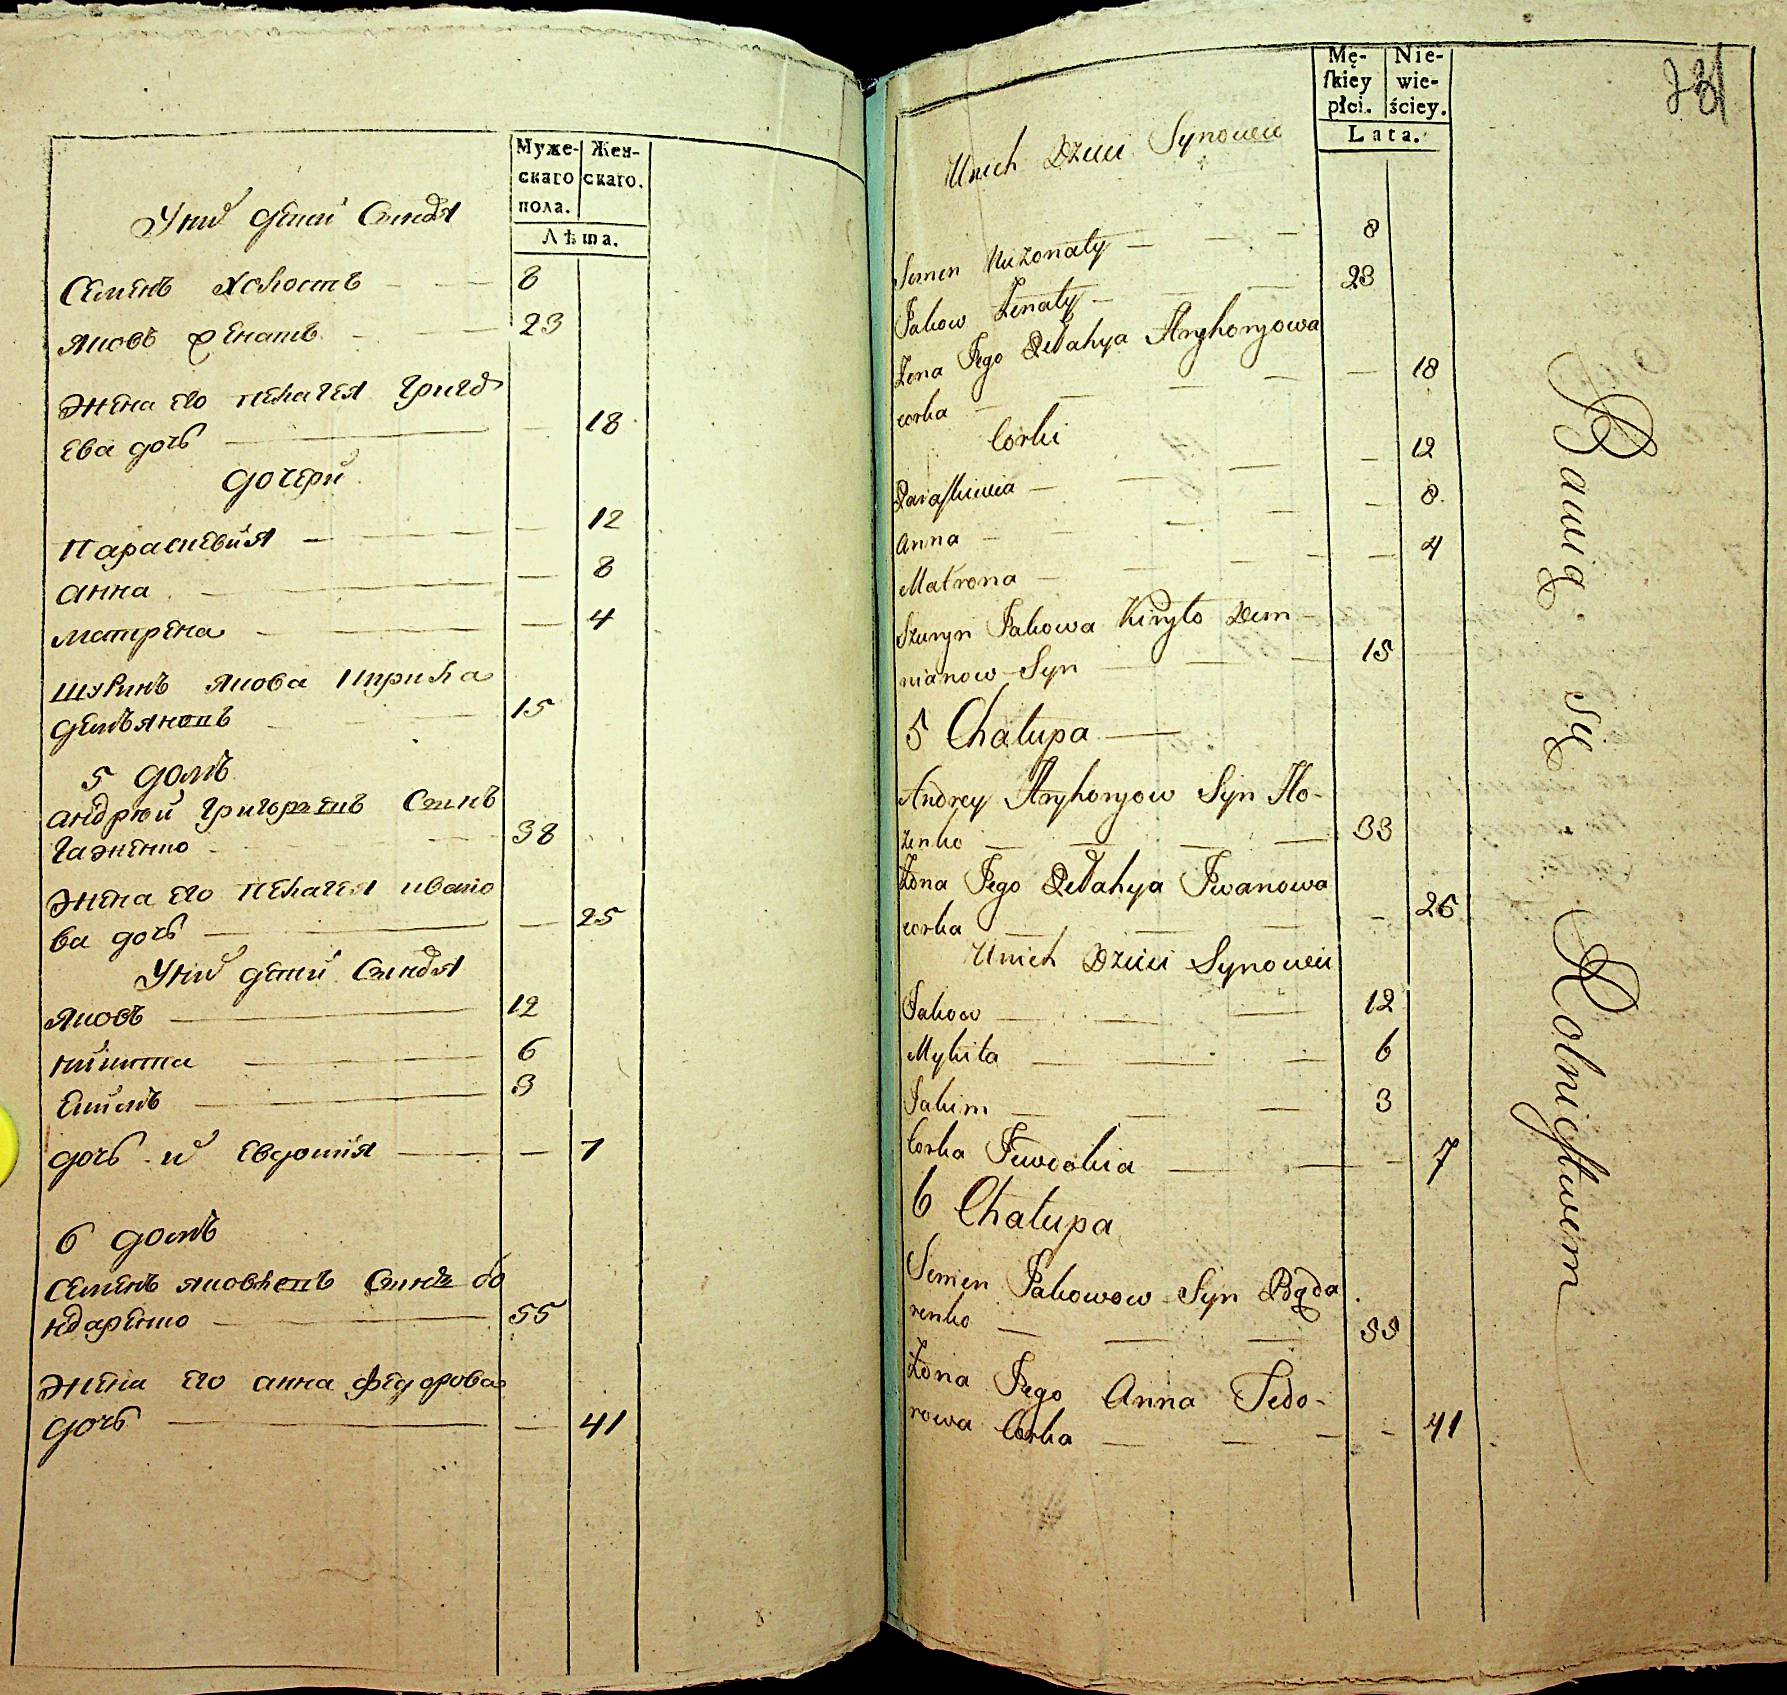 Муже- Жен-
скаго скаго.
пола.
Лѣта.
Уних дети Синовя
Семенъ холостъ 8
Яковъ женатъ 23
жена его пелагея Григо
ева дочь 18
дочери
Параскевия 12
анна 8
матрена 4
шуринъ якова кирила
демъяновъ 15
5 домъ
андрюй Григориевъ Синъ
38
жена его пелагея ивано
ва дочь 25
Уних дети Синовя
Яковъ 12
никита 6
Екимъ 3
дочь их евдокия 7
6 домъ
Семенъ яковлевъ Синъ бо
ндаренко 55
жена его анна федорова
дочь 41
Mę- Nie-
skiey wie-
płci. ściey.
Lata.
731
Unich Dzieci Synowie
Semen Nieżonaty 8
Jakow Żenaty 23
Żona Jego Pełahya Hryhoryowa
corka 18
Corki
Paraskiewia 12
Anna 8
Matrona 4
Szuryn Jakowa Kiryło Dem
nianow Syn 15
5 Chałupa
Andrey Hryhoryow Syn Ho-
żenko 33
Żona Jego Pełahya Iwanowa
corka 26
Unich Dzieci Synowie
Jakow 12
Mykita 6
Jakim 3
Corka Jewdokia 7
6 Chałupa
Semen Jakowow Syn Bąda
renko 55
Żona Jego Anna Fedo-
rowa Corka 41
Bawią się Rolnictwem